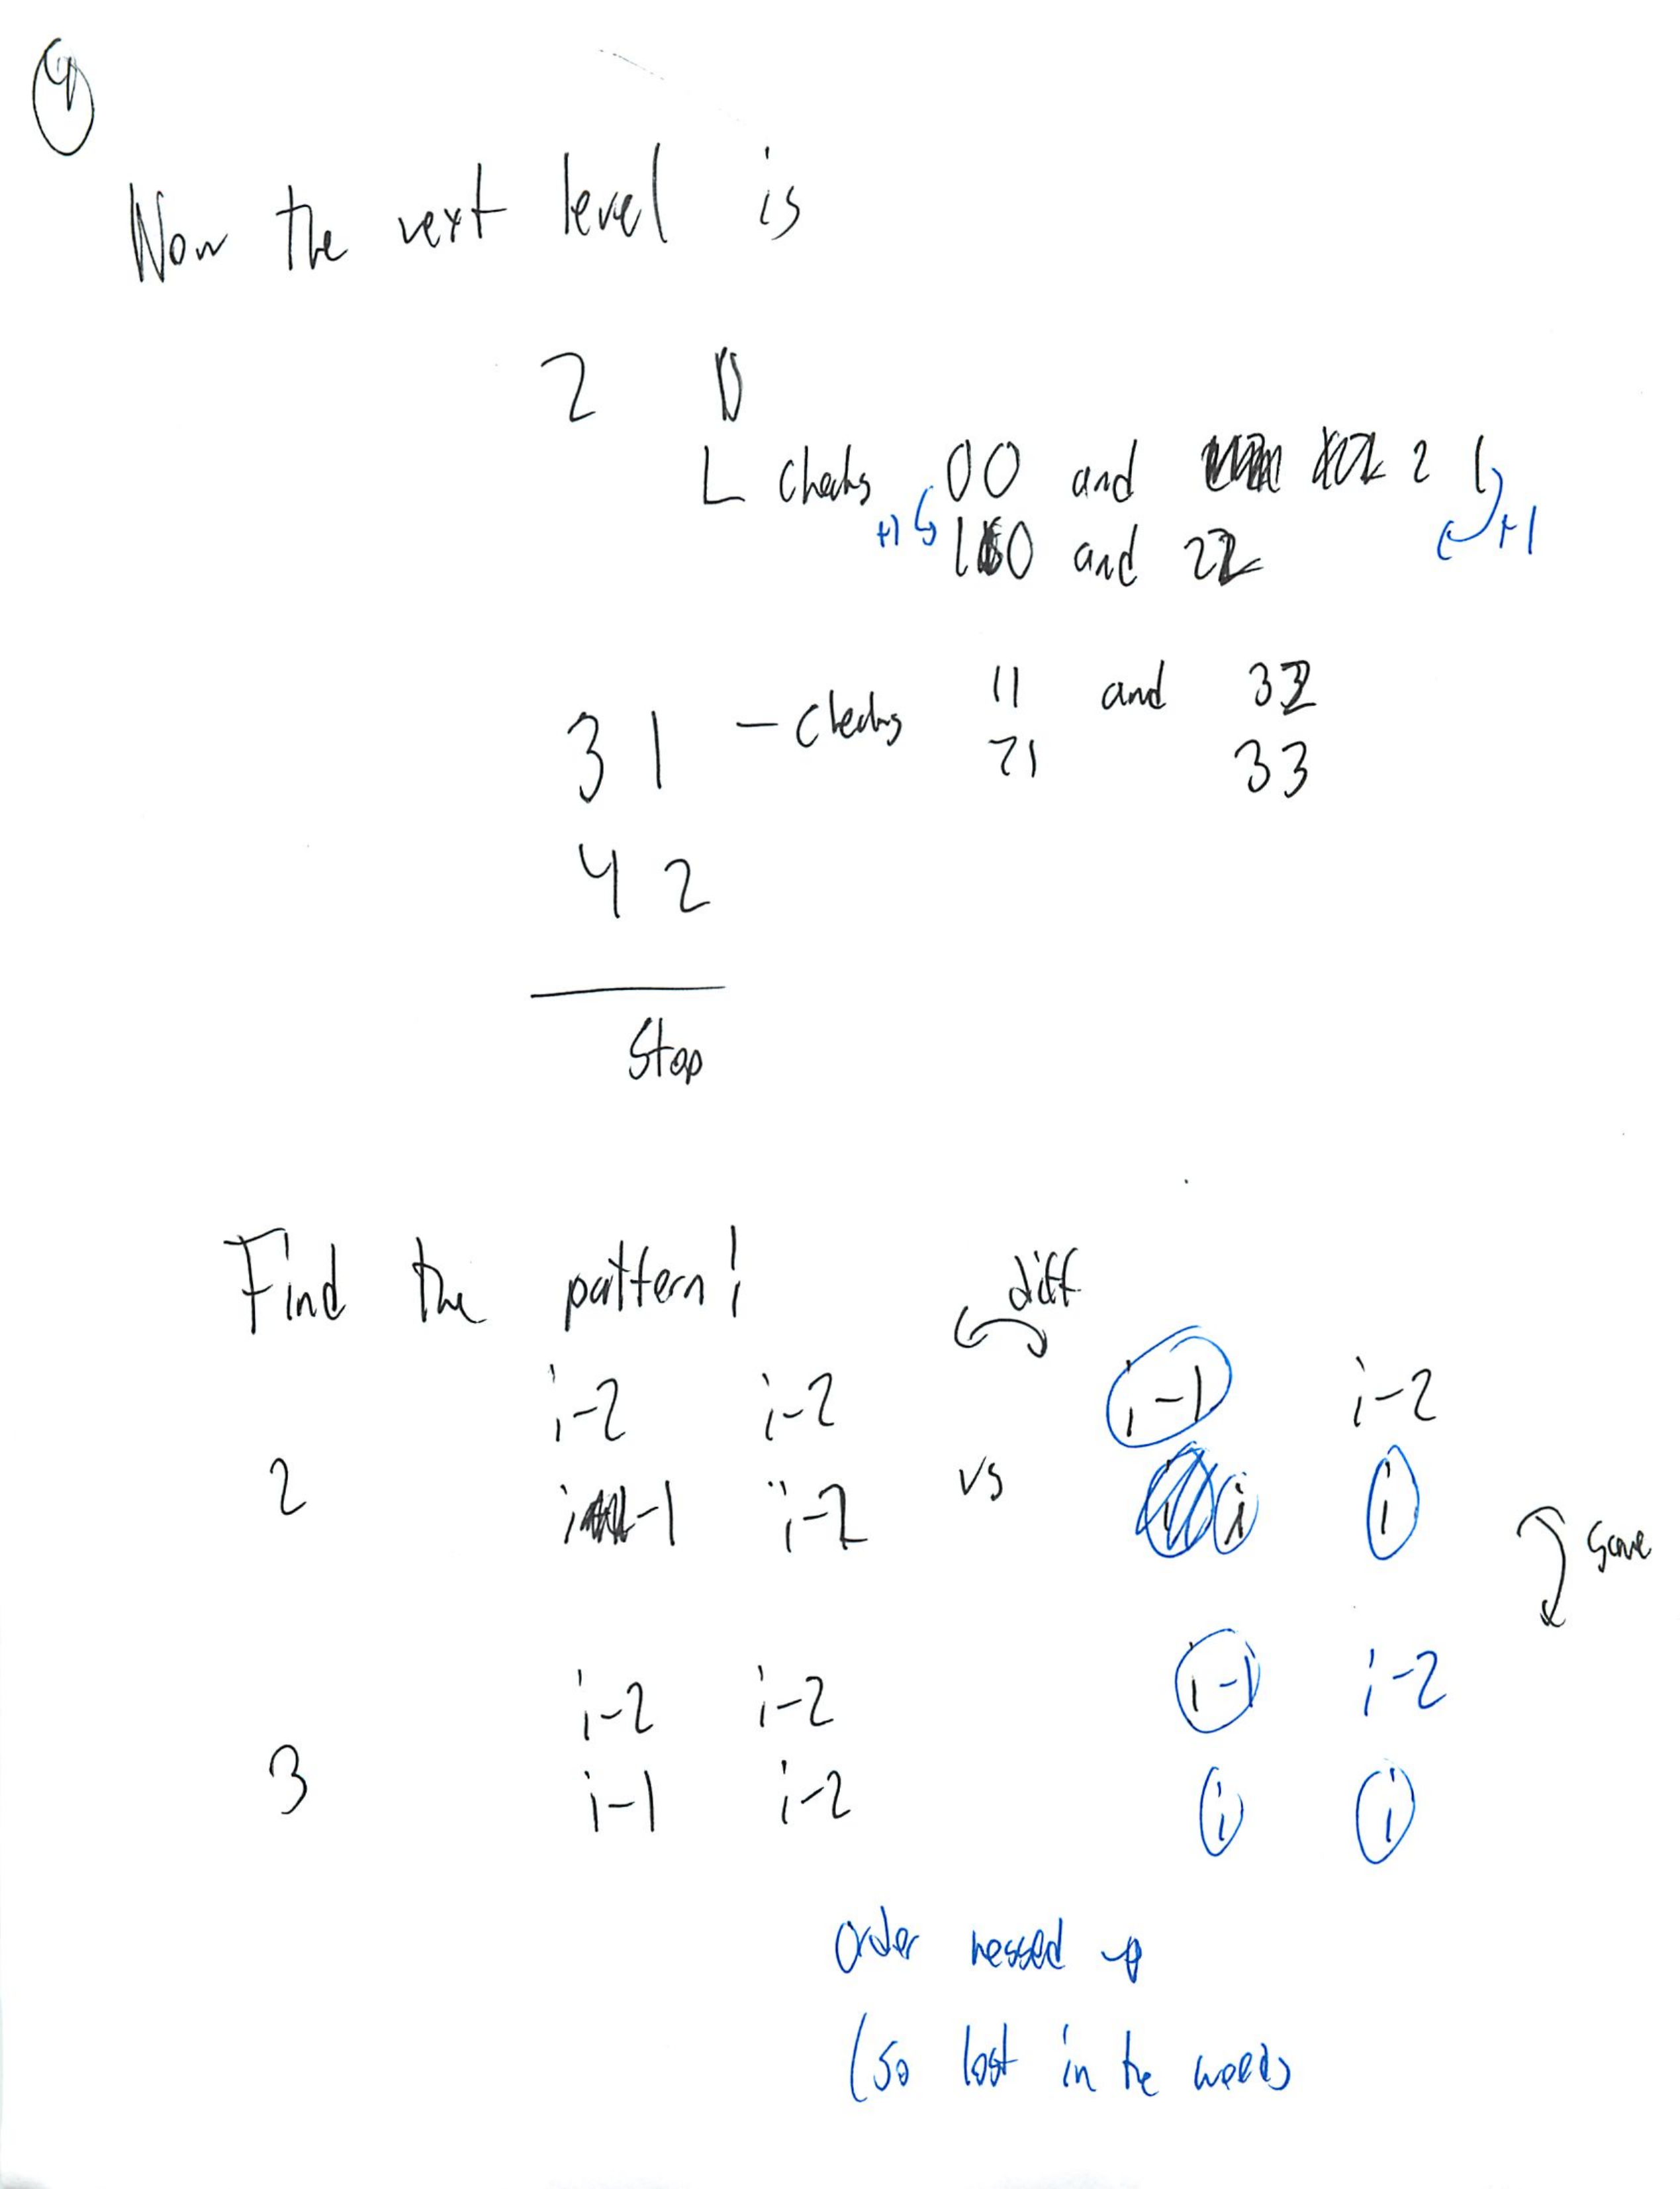 4
Now the next level is
2 0
L checks 00 and 2 1
+1 +1
10 and 22
11 and 32
3 1 – checks
21 33
4 2
Stop
Find the pattern!
diff
i-2 i-2 i-1 i-2
2 vs
i-1 i-2 i i
same
i-2 i-2 i-1 i-2
3
i-1 i-2 i i
order messed up
(so lost in the weeds